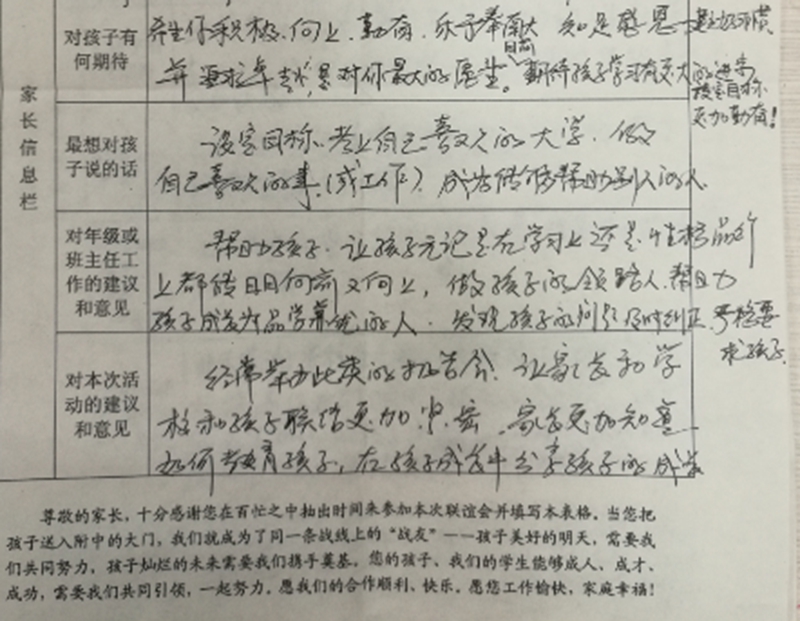 家长信息栏
对孩子有何期待
积极向上、勤奋、乐于奉献 知足感恩
是对你最大的 期待孩子学习有更大的进步
设定目标
更加勤奋！
最想对孩子说的话
设定目标、考上自己喜欢的大学、做
自己喜欢的事（或工作）成为能够帮助别人的人
对年级或班主任工作的建议和意见
帮助孩子、让孩子无论是在学习上还是性格品行
上都能日日向前又向上，做孩子的领路人、帮助
孩子成为品学兼优的人、发现孩子的问题及时纠正、严格要
求孩子
对本次活动的建议和意见
经常举办此类的报告会、让家长和学
校和孩子联络更加紧密、家长更加知道
如何教育孩子，在孩子成长中分享孩子的成长
尊敬的家长，十分感谢您在百忙之中抽出时间来参加本次联谊会并填写本表格。当您把
孩子送入附中的大门，我们就成为了同一条战线上的“战友”——孩子美好的明天，需要我
们共同努力，孩子灿烂的未来需要我们携手奠基。您的孩子、我们的学生能够成人、成才、
成功，需要我们共同引领，一起努力。愿我们的合作顺利、快乐。愿您工作愉快，家庭幸福！